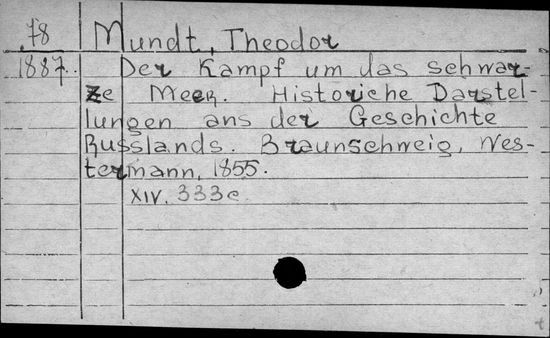 .78 Mundt, Theodor
1887. Der Kampf um das schwar-
ze Meer. Historiche Darstel-
lungen ans der Geschichte
Russlands. Braunschweig, Wes-
termann, 1855.
XIV. 333 c